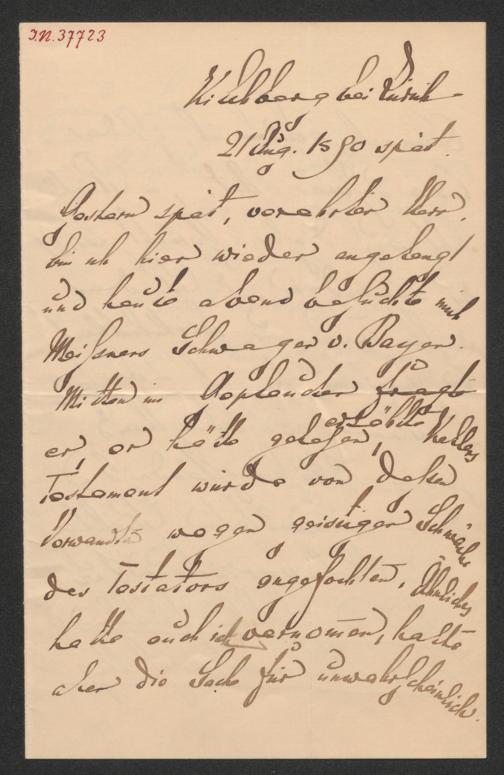 I.N. 37723
Kilchberg bei Zürich
21 Aug. 1890 spät.
Gestern spät, verehrter Herr,
bin ich hier wieder angelangt
und heute abend besuchte mich
Meißners Schwager v. Bayer.
Mitten im Geplauder fragte
erzählte
er, er hätte gelesen, Kellers
Testament würde von deßen
Verwandten wegen geistiger Schwäche
des Testators angefochten. Ähnliches
hatte auch ich vernomen, halte
aber die Sache für unwahrscheinlich.